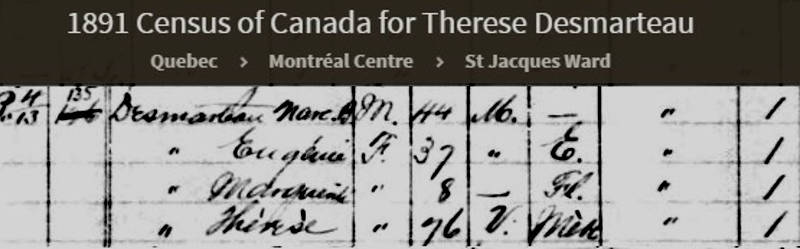 1891 Census of Canada for Therese Desmarteau
Quebec > Montréal Centre > St Jacques Ward
4 135 Desmarteau Narc. B. M. 44 M. — " 1
13
" Eugénie F. 37 " E. " 1
" Marguerite " 8 — Fl. " 1
" Thérèse " 76 V. Mère " 1